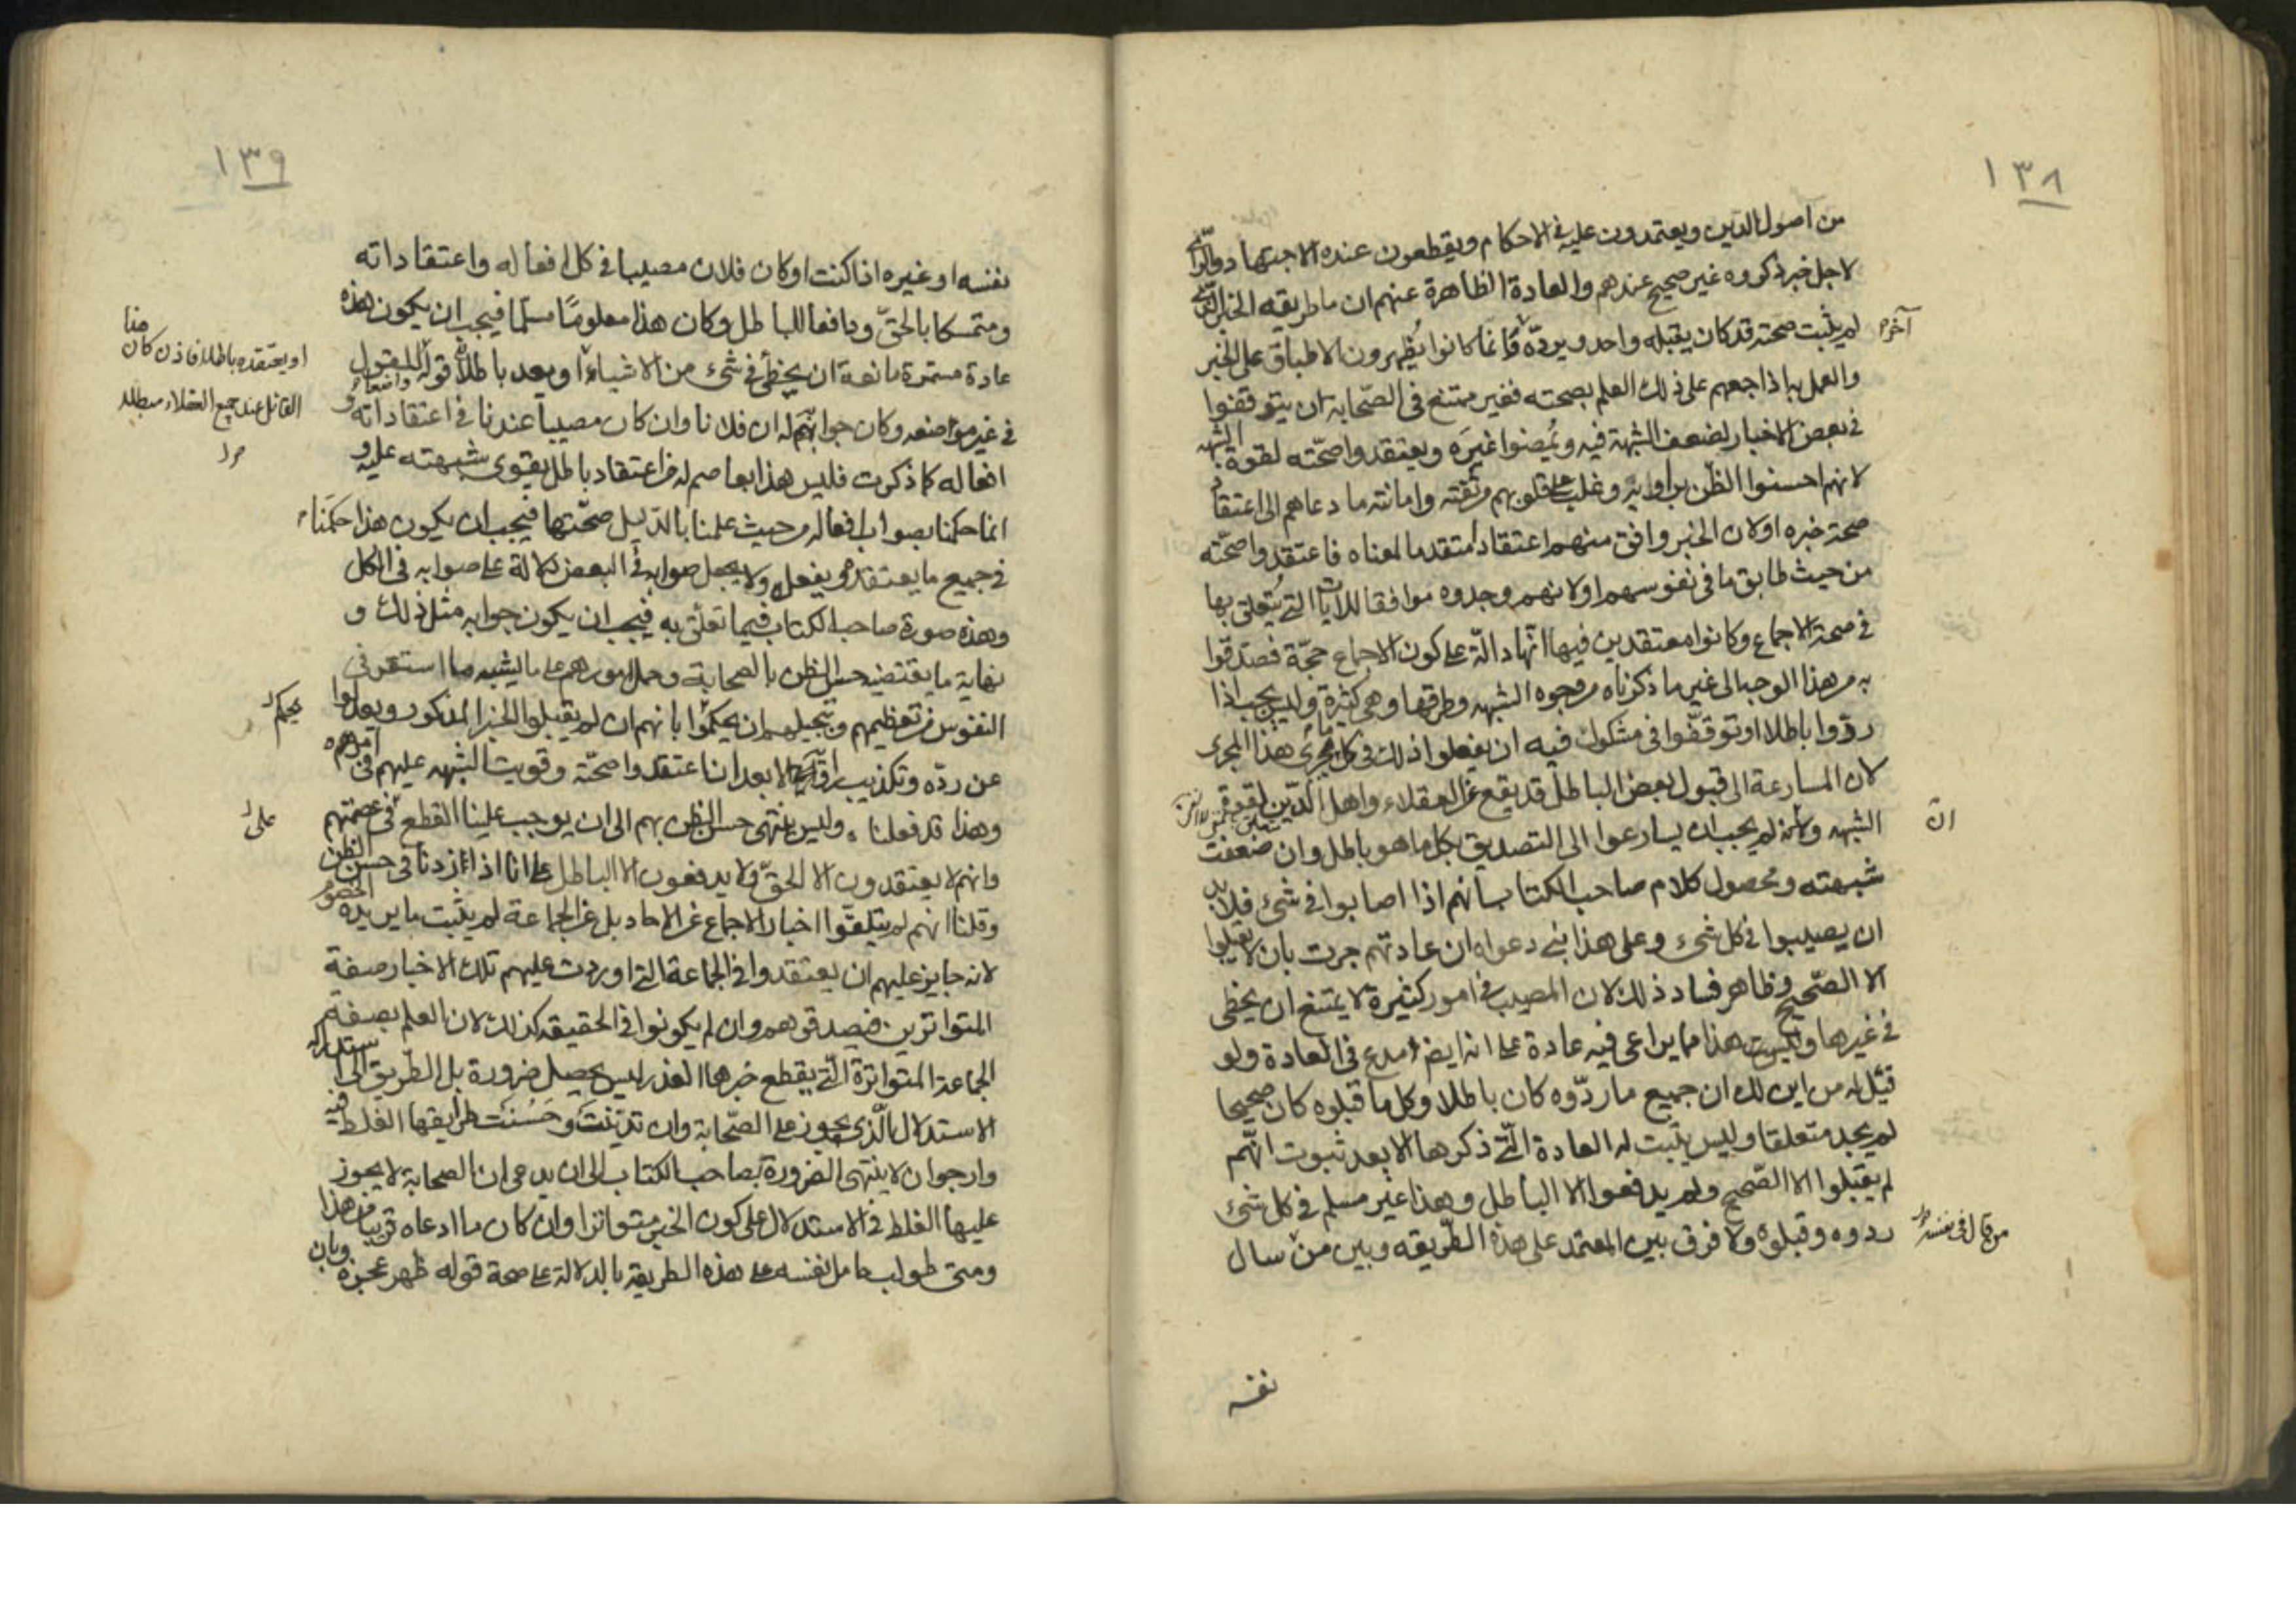 ١٣٨
من اصول الدين ويعتمدون عليه في الاحكام ويقطعون عنده الاجتهاد والرأى
لاجل خبر ذكروه غير صحيح عندهم والعادة الظاهرة عنهم ان ما طريقه
آخره
لم يثبت صحته قد كان يقبله واحد ويردّه وانما كانوا يظهرون الاطباق على الخبر
والعمل به اذا جعهم على ذلك العلم بصحته فغير ممتنع في الصّحابة ان يتوقفوا
في بعض الاخبار لضعف الشبهة فيه ويُمضوا غيرَه ويعتقدوا صحّته لقوة الشبه
لانهم احسنوا الظن براوايه وغلب على قلوبهم من ثقته وامانته ما دعاهم الى اعتقاد
صحة خبره او لان الخبر وافق منهم اعتقادا متقدما لمعناه فاعتقدوا صحّته
من حيث طابق ما في نفوسهم او لانهم وجدوه موافقا للايات التي يُتعلق بها
في صحة الاجماع وكانوا معتقدين فيها انّها دالّة على كون الاجماع حجّة فصدّقوا
به من هذا الوجه الى غير ما ذكرناه من وجوه الشبه وطرقها وهي كثيرة وليس يجب اذا
ردّوا باطلا او توقّفوا في مشكوك فيه ان يفعلوا ذلك في كل ما يجرى هذا المجرى
لان المسارعة الى قبول بعض الباطل قد يقع من العقلاء واهل الدّين لقوة
الشبه وانه لم يجب ان يسارعوا الى التصديق بكل ما هو باطل وان ضعفت
انّ
شبهته ومحصول كلام صاحب الكتاب انهم اذا اصابوا في شئ فلا بد
ان يصيبوا في كل شئ وعلى هذا بنى دعواه ان عادتهم جرت بان لا يقبلوا
الا الصّحيح وظاهر فساد ذلك لان المصيب في امور كثيرة لا يمتنع ان يخطى
في غيرها وليست هذا مما يراعى فيه عادة على انه ايضا مدع في العادة ولو
قيل له من اين لك ان جميع ما ردّوه كان باطلا وكل ما قبلوه كان صحيحا
لم يجد متعلقا وليس يثبت له العادة الّتي ذكرها الا بعد ثبوت انهم
لم يقبلوا الا الصّحيح ولم يدفعوا الا الباطل وهذا غير مسلم في كل شئ
ردوه وقبلوه ولا فرق بين المعتمد على هذه الطّريقه وبين من سال
من قال في نفسه
نفسه
١٣٩
نفسه او غيره اذا كنت او كان فلان مصيبا في كل افعاله واعتقاداته
ومتمسكا بالحقّ ودافعا للباطل وكان هذا معلومًا مسلما فيجب ان يكون هذه
عادة مستمرة مانعة ان يخطئ في شئ من الاشياء او يعد باطلا قوله للمقول
او يعتقده باطلا فاذن كان هذا
القائل عند جميع العقلاء مبطلا
في غير مواضعه وكان جوابهم له ان فلانا وان كان مصيبا عندنا في اعتقاداته و
افعاله كما ذكرت فليس هذا بعاصم له من اعتقاد باطل يقوى شبهته عليه و
انما حكمنا بصواب افعاله من حيث علمنا بالدّليل صحّتها فيجب ان يكون هذا حكمنا
في جميع ما يعتقده ويفعله ولا يجعل صوابه في البعض دلالة على صوابه في الكل
وهذه صورة صاحب الكتاب فيما تعلّق به فيجب ان يكون جوابه مثل ذلك و
نهاية ما يقتضيه حسن الظن بالصحابة وحمل امورهم على ما يشبه ما استقر في
النفوس من تعظيمهم وتبجيلهم ان يحكموا بانهم لم يقبلوا الخبر المذكور ويعدلوا
يحكم
عن ردّه وتكذيب راويه الا بعد ان اعتقدوا صحّته وقويت الشبه عليهم في امره
وهذا قد فعلنا وليس ينتهى حسن الظن بهم الى ان يوجب علينا القطع في عصمتهم
على
وانهم لا يعتقدون الا الحقّ ولا يدفعون الا الباطل على انا اذا زدنا في حسن الظن
وقلنا انهم لم يتلقّوا اخبار الاجماع عن الاحاد بل عن الجماعة لم يثبت ما يريده الخصوم
لانه جايز عليهم ان يعتقدوا في الجماعة التي اوردت عليهم تلك الاخبار صفة
المتواترين فيصدقوهم وان لم يكونوا في الحقيقه كذلك لان العلم بصفة
الجماعة المتواترة الّتي يقطع خبرها العذر ليس يحصل ضرورة بل الطّريق اليه
الاستدلال الّذي يجوز على الصّحابة وان تديّنت وحَسُنَت طرايقها الغلط فيه
وارجو ان لا ينتهى الضرورة بصاحب الكتاب الى ان يدعى ان الصحابة لا يجوز
عليها الغلط في الاستدلال على كون الخبر متواترا وان كان ما ادعاه قريبا من هذا
ومتى طولب حامل نفسه على هذه الطريقة بالدلالة على صحة قوله ظهر عجزه وبان